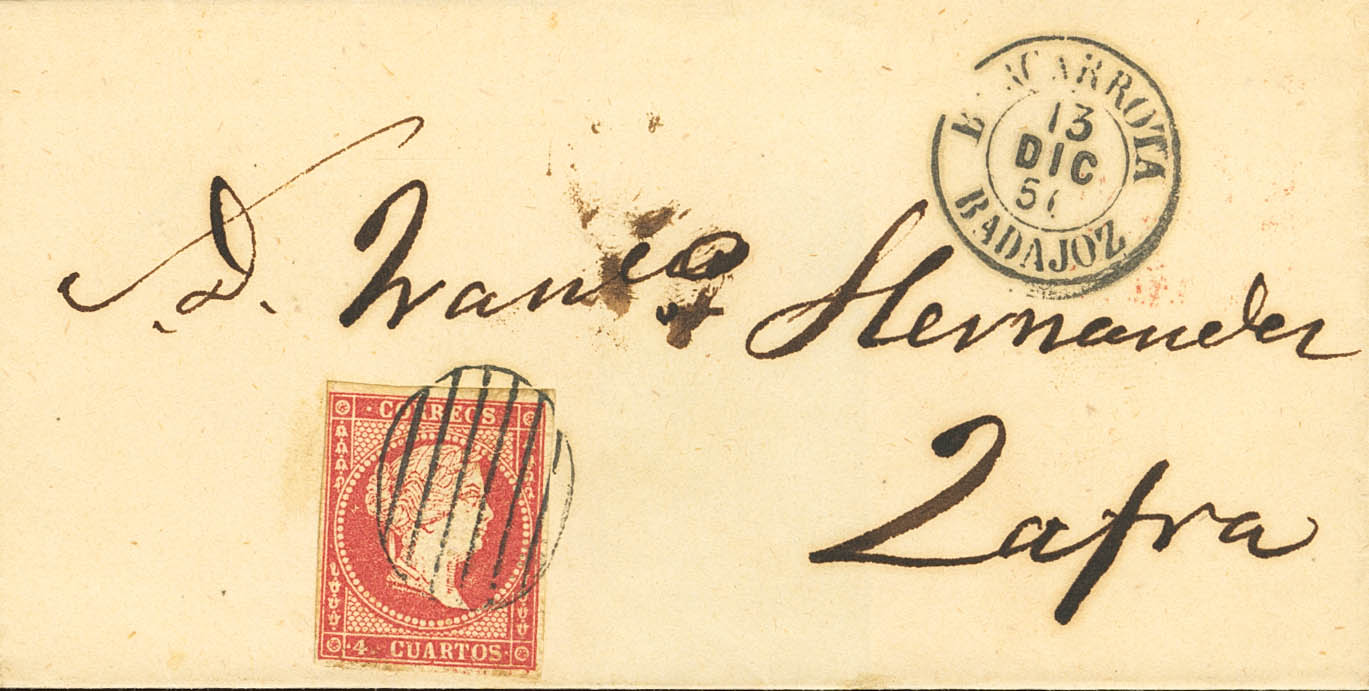 BARCARROTA
13
DIC
56
BADAJOZ
D. Franco Hernandez
Zafra
CORREOS
4 CUARTOS